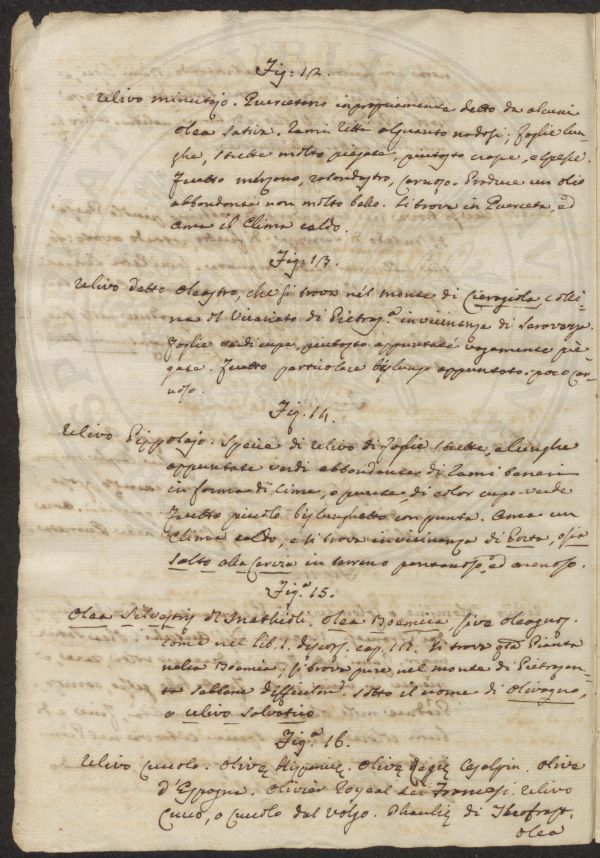 Fig: 12.
Ulivo minutajo. Quercetano impropriamente detto da alcuni
olea sativa. Rami retti alquanto nodosi; foglie lun-
ghe, strette molto piegate, piutosto crespe, e spesse.
Frutto mezzono, rotondastro, carnoso. Produce un olio
abbondante non molto bello. Si trova in Querceta, ed
ama il Clima caldo.
Fig: 13.
Ulivo detto oleastro, che si trova nel monte di Ceragiola colli-
na del Vicariato di Pietras.ª in vicinanza di Saravezza.
Foglie verdi cupe, piutosto appuntate vagamente pie-
gate. Frutto particolare bislungo appuntato. poco car-
noso.
Fig: 14.
Ulivo Pippolajo. Specie di Ulivo di foglie strette, e lunghe
appuntate verdi abbondante di rami
in forma di cime, e puntate di color cupo verde
Frutto piccolo bislunghetto con punta. Ama un
Clima caldo, e si trova in vicinanza di Porta, o sia
Salto alla Cervia in terreno pantanoso, ed arenoso.
Fig.ª 15.
Olea Silvestris del Mathioli. Olea Boemica, sive oleagnos.
come nel lib. I. discors. cap. Si trova q.ta Pianta
nella Boemia; si trova pure nel monte di Pietrasan-
ta sebbene difficilm.e sotto il nome di Olivagno,
o ulivo salvatico
Fig.ª 16.
Ulivo Cuccolo. Olivę Hispanię. Olivę Regię Cesalpin. Olive
d'Espagne. Olivier Royeal dei Francesi. Ulivo
Cucco, o Cuccolo dal volgo. Phaulię di Theofrast.
olea